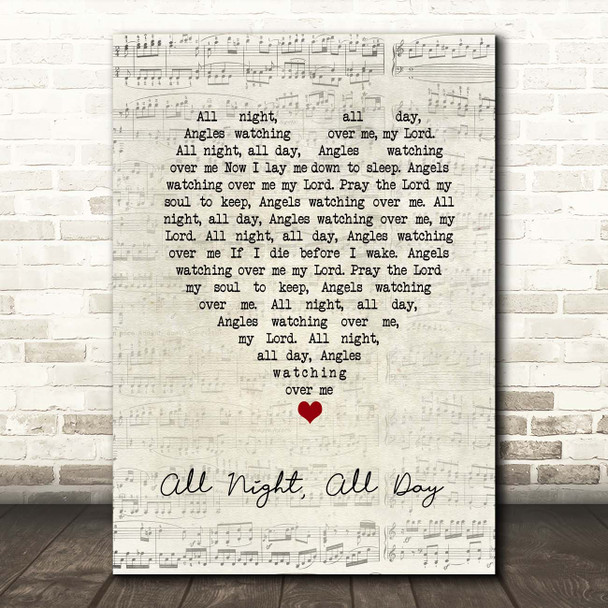 All night, all day,
Angles watching over me, my Lord.
All night, all day, Angles watching
over me Now I lay me down to sleep. Angels
watching over me my Lord. Pray the Lord my
soul to keep, Angels watching over me. All
night, all day, Angles watching over me, my
Lord. All night, all day, Angles watching
over me If I die before I wake. Angels
watching over me my Lord. Pray the Lord
my soul to keep, Angels watching
over me. All night, all day,
Angles watching over me,
my Lord. All night,
all day, Angles
watching
over me
All Night, All Day